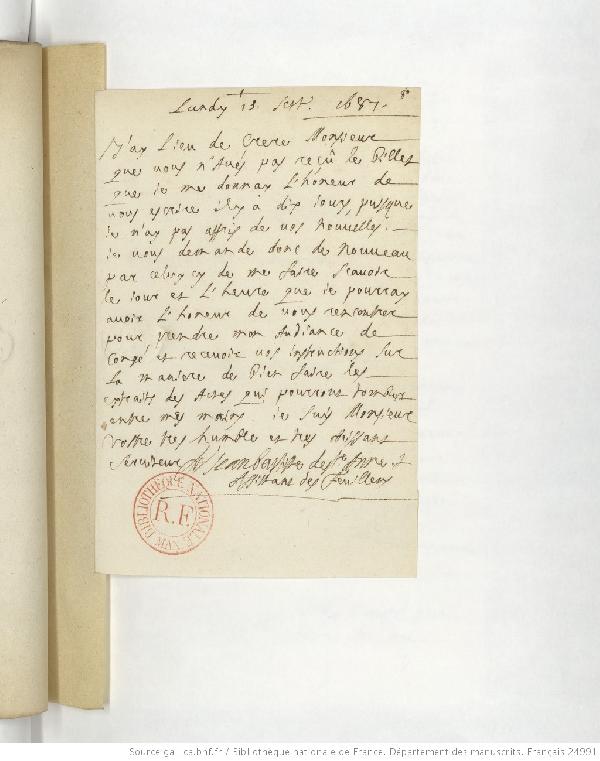 Lundy 15 Sept. 1687. 8
J'ay lieu de Crere Monsieur
que vous n'Avés pas reçû le Billet
que ie me donnay L'honeur de
vous escrire il y a dix iours, puisque
ie n'ay pas appris de vos Nouvelles.
ie vous demande donc de Nouveau
par celuy cy de me faire Scavoir
le iour et L'heure que ie pourray
avoir L'honeur de vous rencontrer
pour prendre mon Audiance de
Congé et recevoir vos instructions sur
la maniere de Bien faire les
extraits des Actes qui pourront tomber
entre mes mains. ie suis Monsieur
Vostre tres humble et tres obissant
Serviteur Jean baptiste de Ste Anne
Assistant des feuillens
BIBLIOTHÈQUE NATIONALE MAN.
R.F.
Source gallica.bnf.fr / Bibliothèque nationale de France. Département des manuscrits. Français 24991